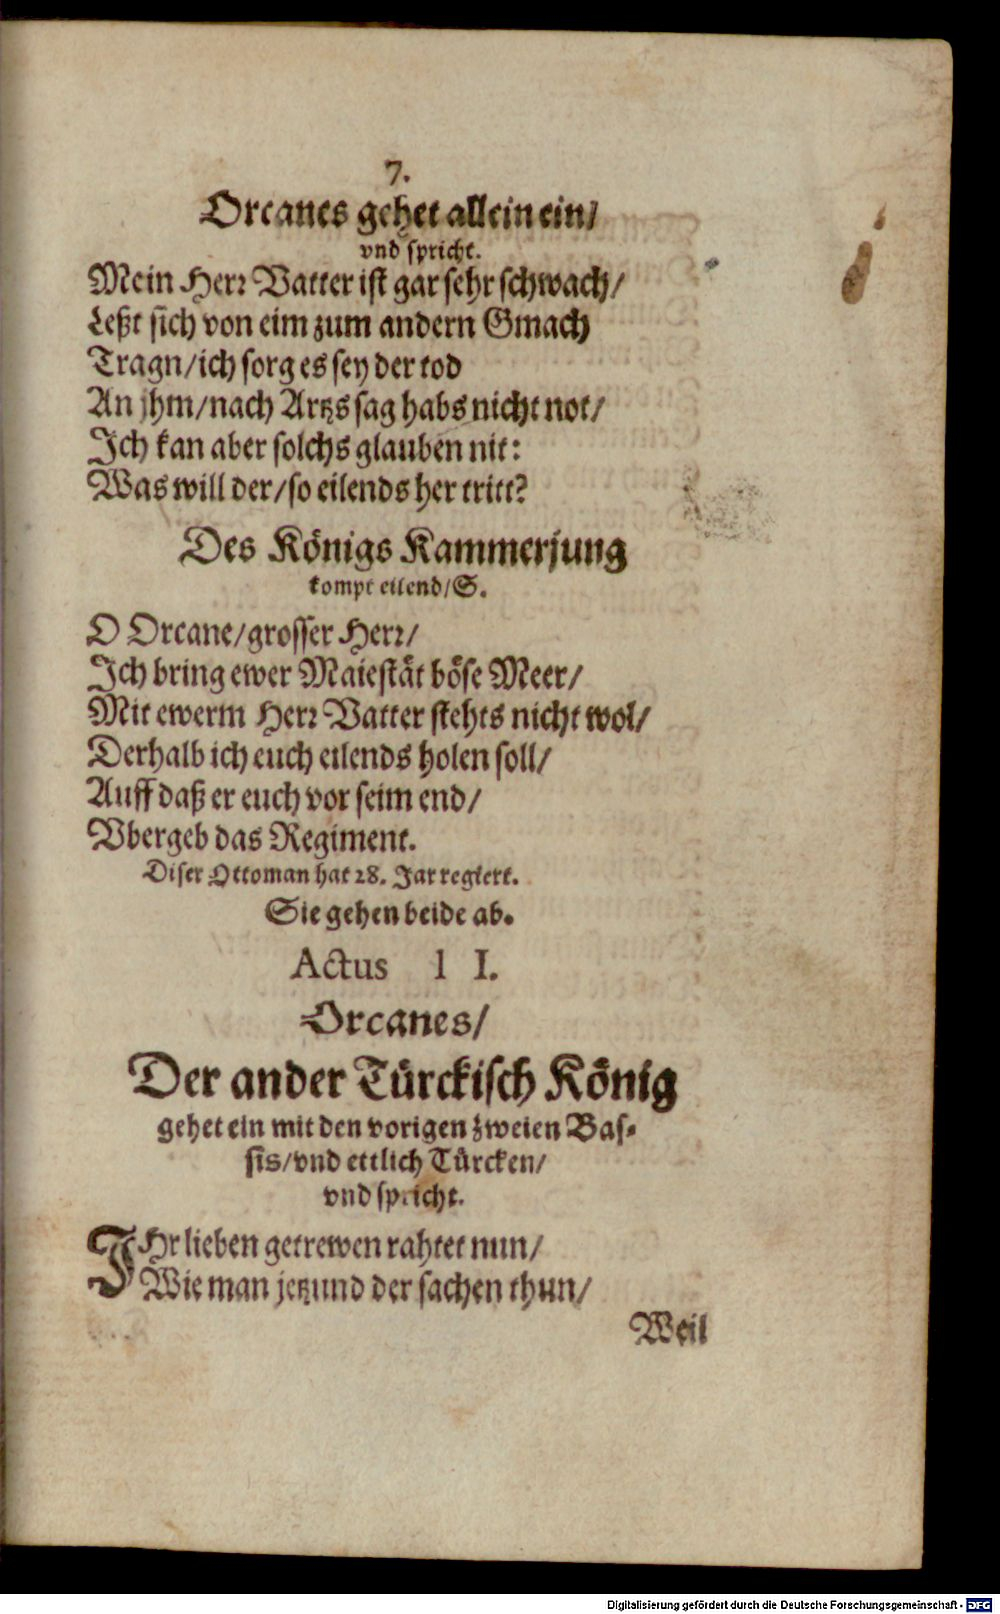 7.
Orcanes gehet allein ein/
vnd spricht.
Mein Herr Vatter ist gar sehr schwach/
Leßt sich von eim zum andern Gmach
Tragn/ich sorg es sey der tod
An jhm/nach Artzs sag habs nicht not/
Ich kan aber solchs glauben nit:
Was will der/so eilends her tritt?
Des Königs Kammerjung
kompt eilend/S.
O Orcane/grosser Herr/
Ich bring ewer Maiestät böse Meer/
Mit ewerm Herr Vatter stehts nicht wol/
Derhalb ich euch eilends holen soll/
Auff daß er euch vor seim end/
Vbergeb das Regiment.
Diser Ottoman hat 28. Jar regiert.
Sie gehen beide ab.
Actus I I.
Orcanes/
Der ander Türckisch König
gehet ein mit den vorigen zweien Bas-
sis/vnd ettlich Türcken/
vnd spricht.
IHr lieben getrewen rahtet nun/
Wie man jetzund der sachen thun/
Weil
Digitalisierung gefördert durch die Deutsche Forschungsgemeinschaft - DFG